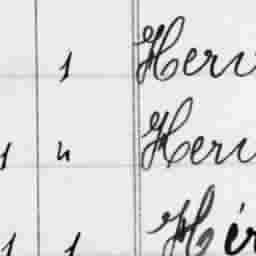 1 Herv
1 " Herv
1 1 Hér